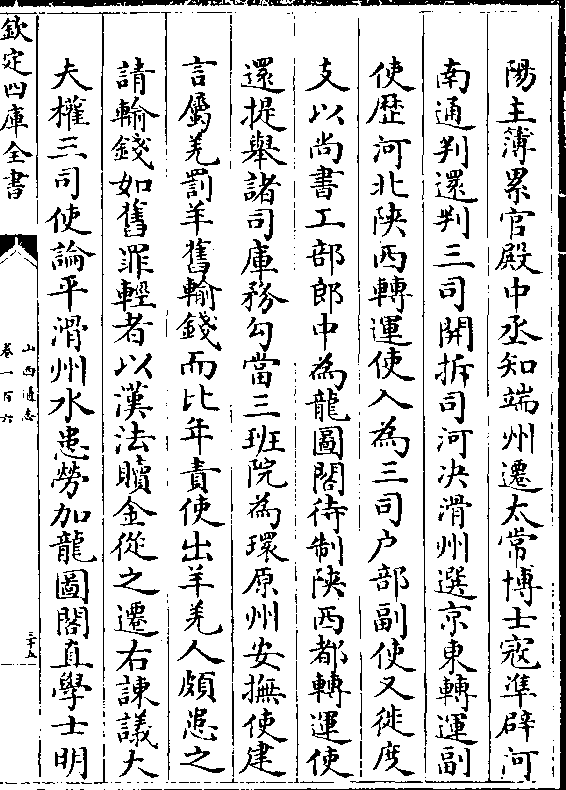 陽主薄累官殿中丞知端州遷太常博士寇準辟河
南通判還判三司開拆司河决滑州選京東轉運副
使歴河北陝西轉運使入為三司户部副使又徙度
支以尚書工部郎中為龍圖閣待制陜西都轉運使
還提舉諸司庫務勾當三班院為環原州安撫使建
言屬羌罰羊舊輸錢而比年責使出羊羌人頗患之
請輸錢如舊罪輕者以漢法贖金從之遷右諫議大
夫權三司使論平滑州水患勞加龍圖閣直學士明
欽定四庫全書
山西通志
卷一百六
三十五